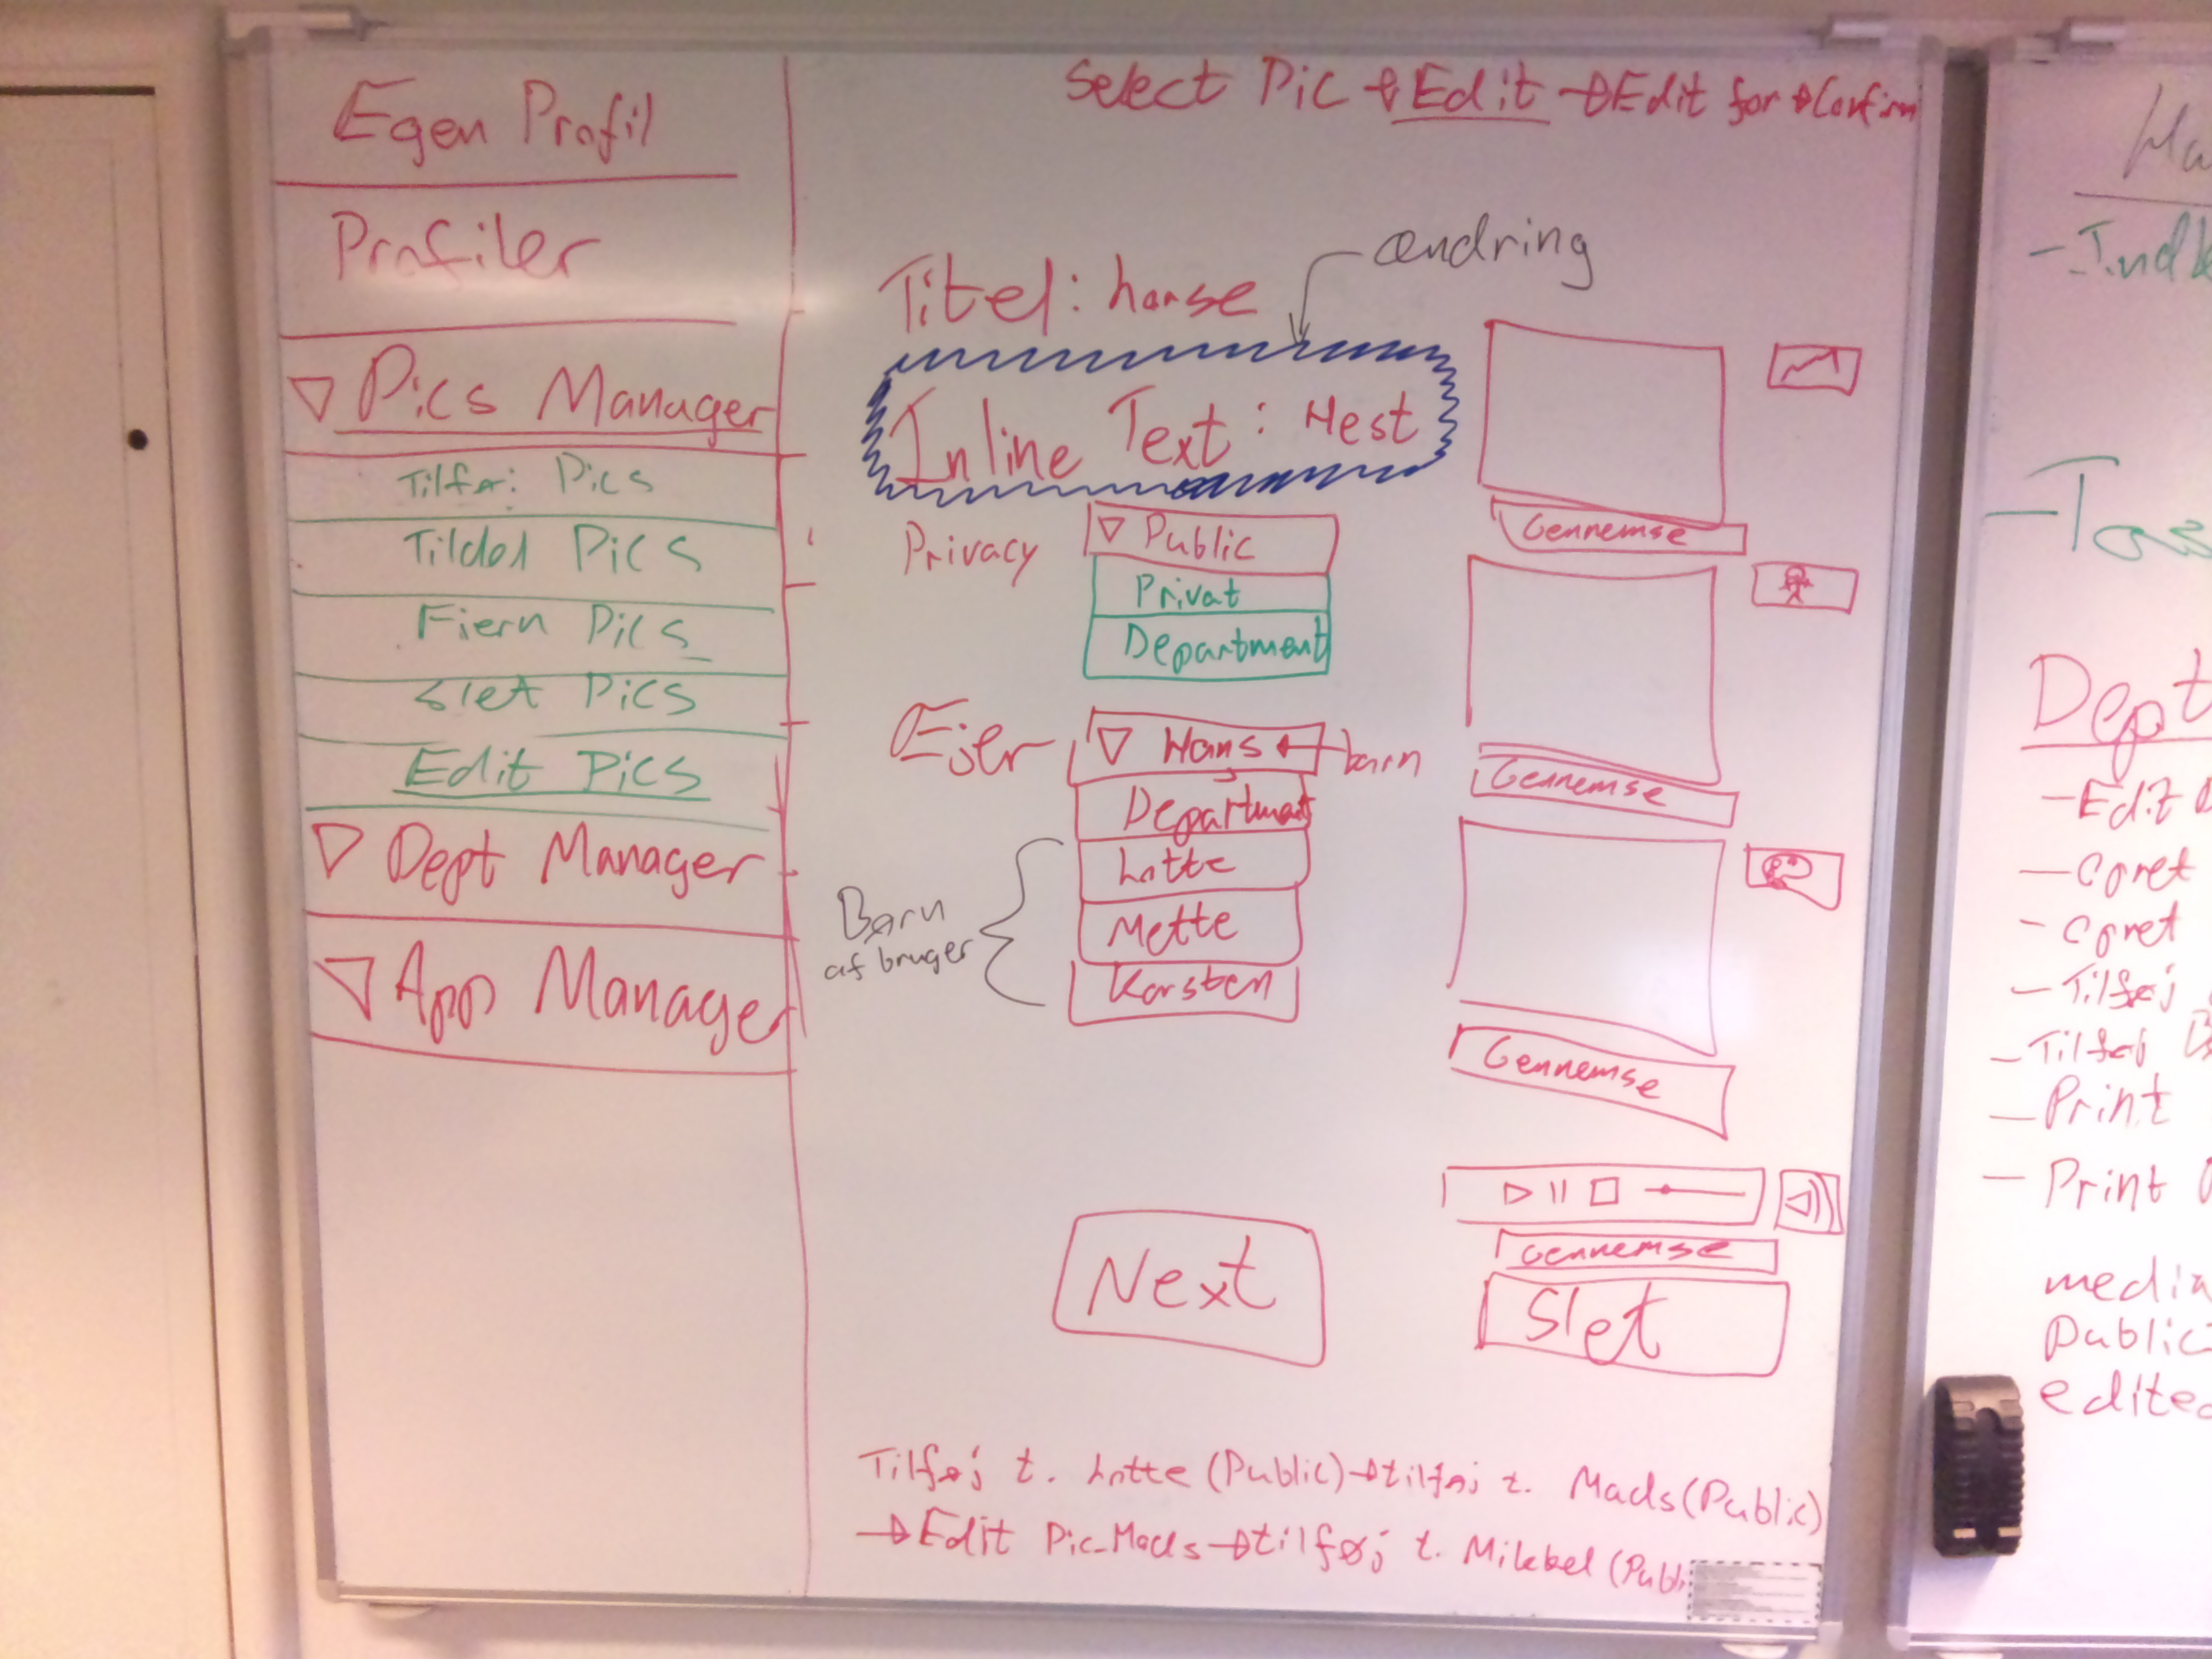 Select Pic → Edit → Edit for → Confirm
Egen Profil
Profiler
▽ Pics Manager
Tilføj Pics
Tildel Pics
Fjern Pics
Slet Pics
Edit Pics
▽ Dept Manager
▽ App Manager
ændring
Titel: horse
Inline Text: Hest
Privacy
▽ Public
Privat
Department
Ejer
▽ Hans ← barn
Department
Lotte
Mette
Karsten
Børn
af bruger
Gennemse
Gennemse
Gennemse
Gennemse
Next
Slet
Tilføj t. Lotte (Public) → tilføj t. Mads (Public)
→ Edit Pic-Mads → tilføj t. Mikkel (Publi
Dept
- Edit
- Opret
- Opret
- Tilføj
- Tilføj
- Print
- Print
media
Public
edited